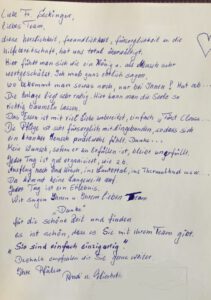 Liebe Fr.
liebes Team,
diese Herzlichkeit, Freundlichkeit, Fürsorglichkeit u. die
Hilfsbereitschaft, hat uns total überwältigt.
Hier fühlt man sich wie ein König u. als Mensch sehr
wertgeschätzt. Ich muß ganz ehrlich sagen,
wo bekommt man sowas noch, nur bei Ihnen! Hut ab...
Die Anlage liegt sehr ruhig. Hier kann man die Seele so
richtig baumeln lassen.
Das Essen ist mit viel Liebe zubereitet, einfach First Class.
Die Pflege ist sehr fürsorglich mit eingebunden, sodass sich
ein kranker Mensch gut fühlt. Danke...
Mein Wunsch, sofern er zu erfüllen ist, bleibt unerfüllt.
Jeder Tag ist gut organisiert, wie z.B.
Ausflug nach Bad ins Lautertal, ins Thermalbad usw.
Da kommt keine Langeweile auf.
Jeder Tag ist ein Erlebnis.
Wir sagen Ihnen u. Ihrem lieben Team
"Danke"
für die schöne Zeit und finden
es ist schön, dass es Sie mit Ihrem Team gibt.
"Sie sind einfach einzigartig."
Deshalb empfehlen wir Sie gerne weiter.
Ihre